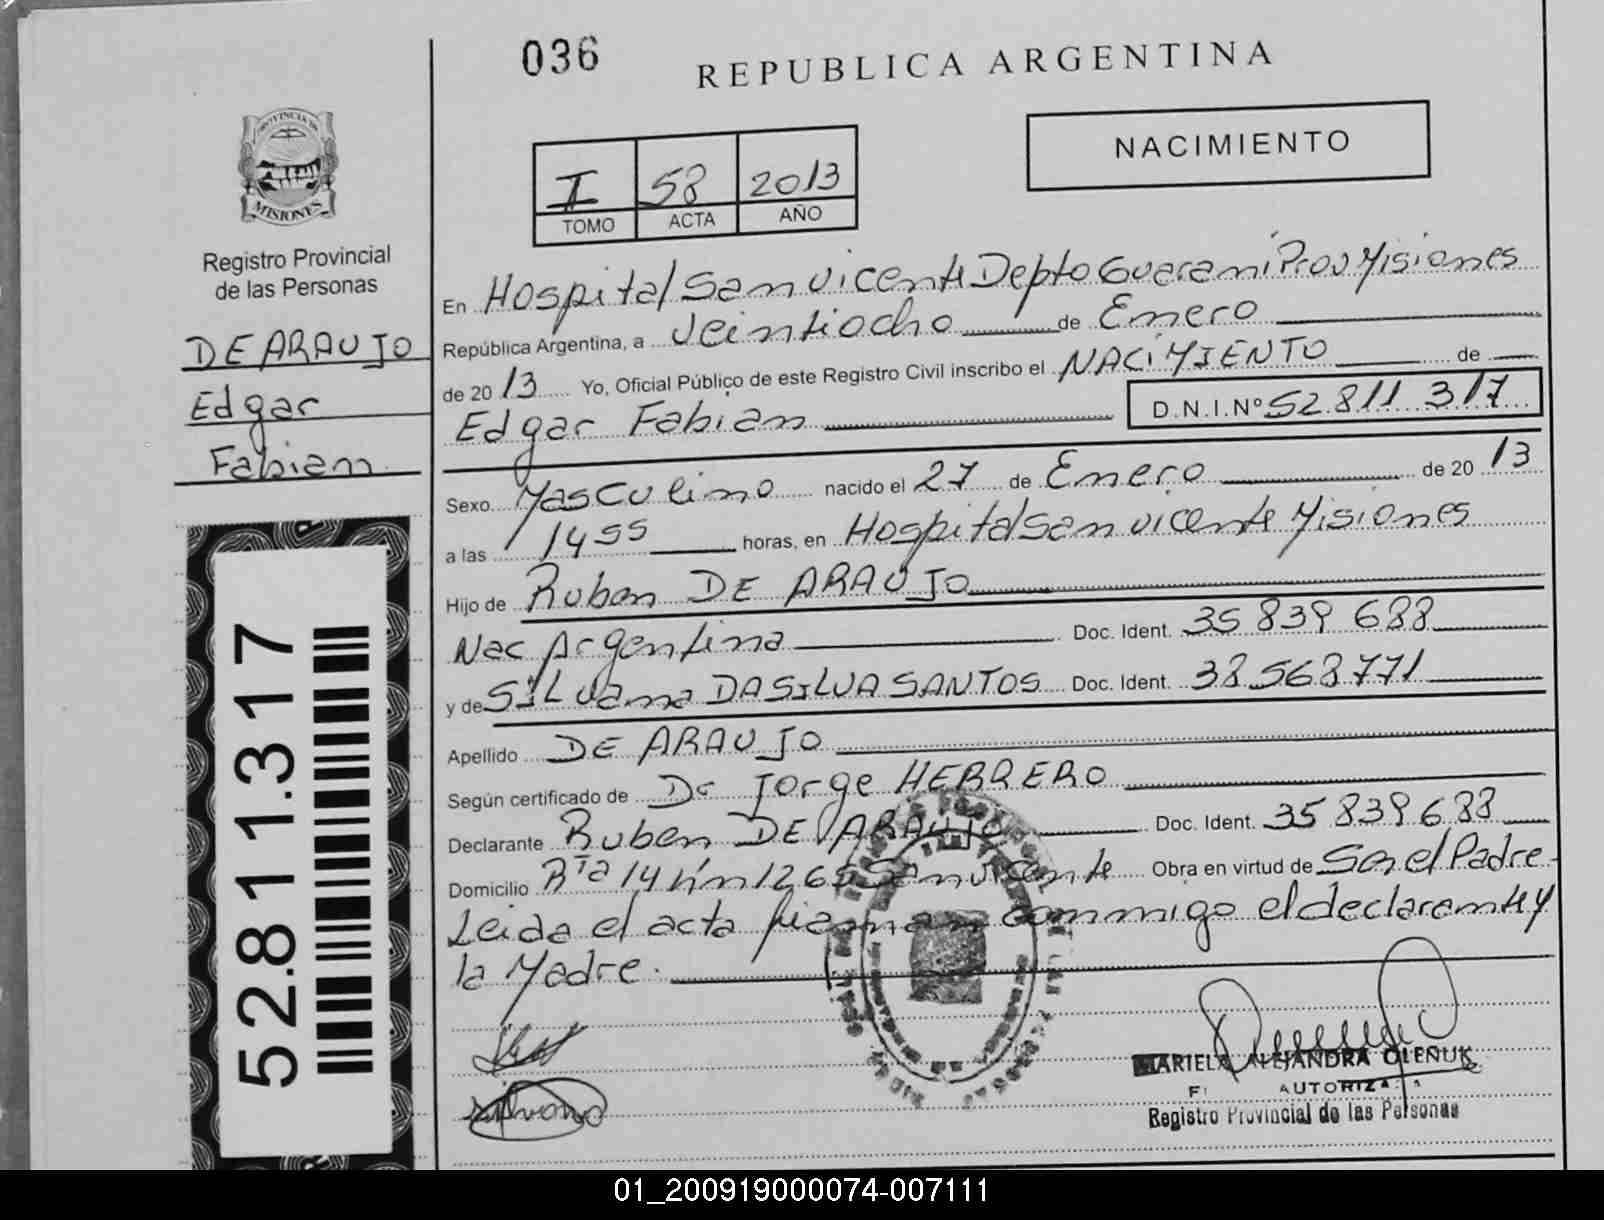 036
REPUBLICA ARGENTINA
PROVINCIA DE
MISIONES
Registro Provincial
de las Personas
DE ARAUJO
Edgar
Fabian
52.811.317
I 58 2013
TOMO ACTA AÑO
NACIMIENTO
En Hospital San Vicente Depto Guarani Prov Misiones
República Argentina, a Veintiocho de Enero
de 20 13 Yo, Oficial Público de este Registro Civil inscribo el NACIMIENTO de
Edgar Fabian D.N.I.Nº 52.811.317
Sexo Masculino nacido el 27 de Enero de 20 13
a las 1455 horas, en Hospital San Vicente Misiones
Hijo de Ruben DE ARAUJO
Nac Argentina Doc. Ident. 35 839 688
y de SILvana DA SILVA SANTOS Doc. Ident. 38.568.771
Apellido DE ARAUJO
Según certificado de Dr Jorge HERRERO
Declarante Ruben DE ARAUJO Doc. Ident. 35 839 688
Domicilio Rta 14 km 1265 San Vicente Obra en virtud de Ser el Padre
Leida el acta firman conmigo el declarante y
la Madre.
Silvana
MARIELA ALEJANDRA OLEÑUK
AUTORIZA
Registro Provincial de las Personas
01_200919000074-007111